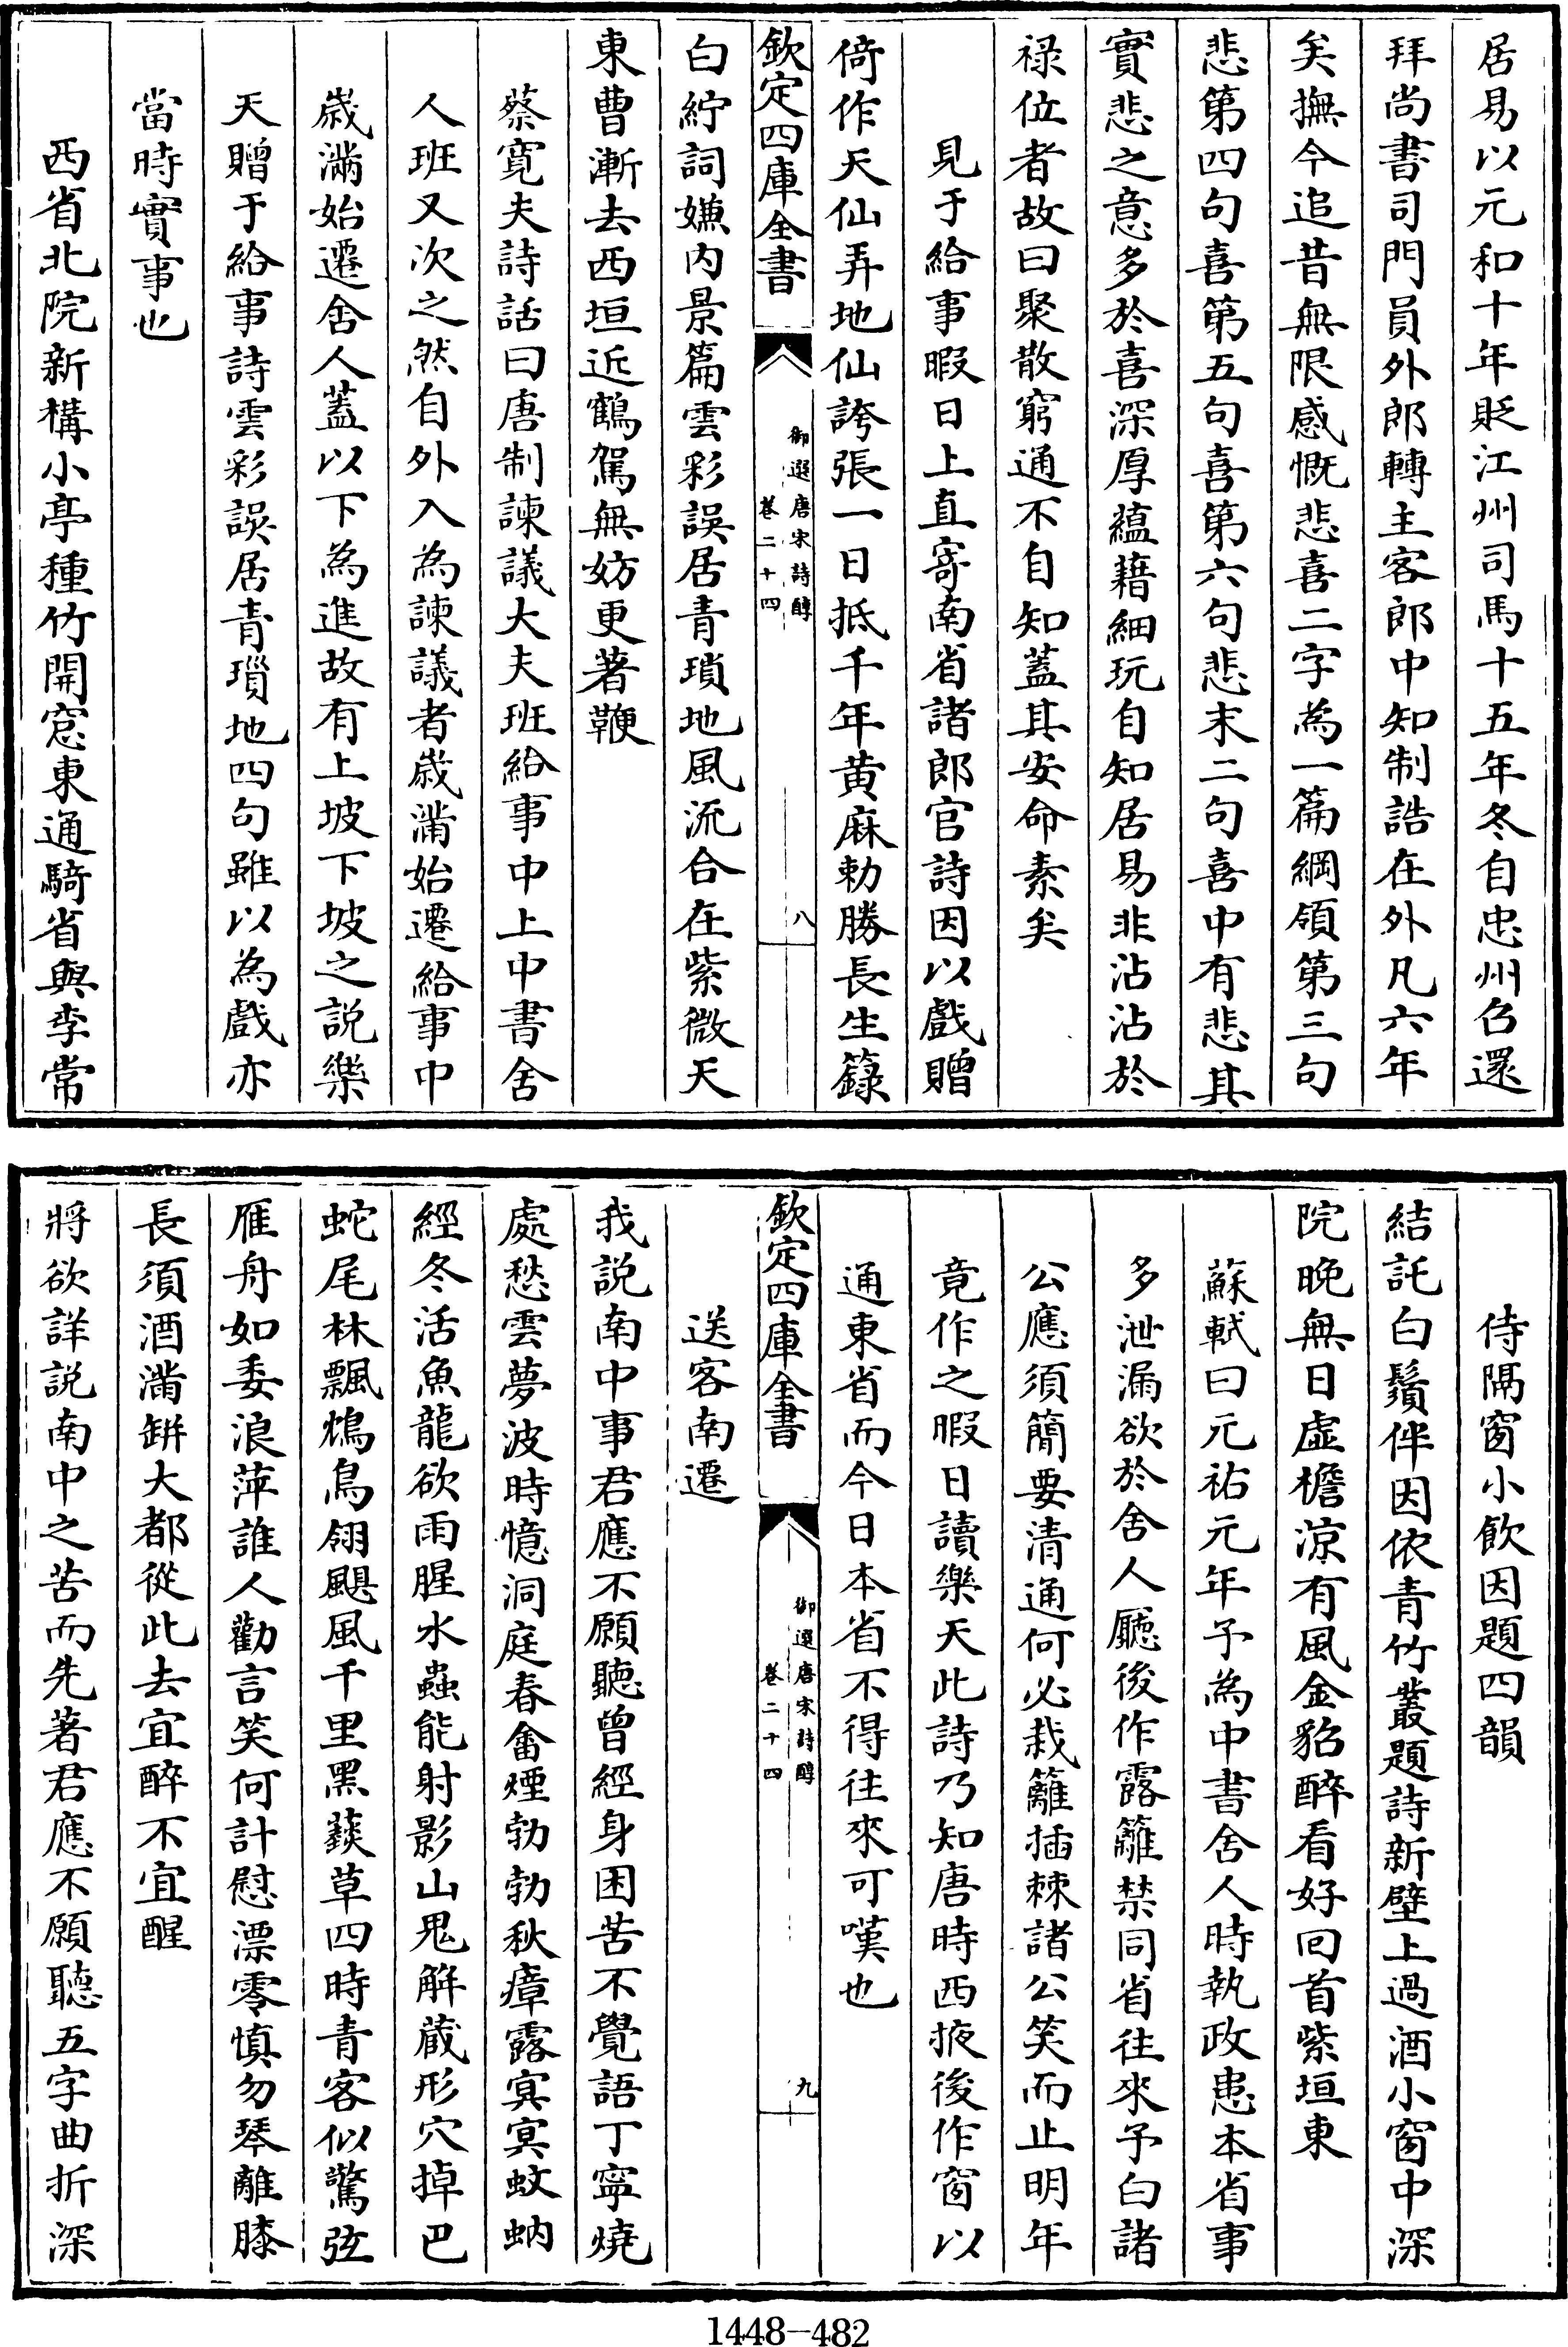 居易以元和十年貶江州司馬十五年冬自忠州召還
拜尚書司門員外郎轉主客郎中知制誥在外凡六年
矣撫今追昔無限感慨悲喜二字為一篇綱領第三句
悲第四句喜第五句喜第六句悲末二句喜中有悲其
實悲之意多於喜深厚藴藉細玩自知居易非沾沾於
禄位者故曰聚散窮通不自知蓋其安命素矣
見于給事暇日上直寄南省諸郎官詩因以戲贈
倚作天仙弄地仙誇張一日抵千年黄麻勅勝長生籙
欽定四庫全書
御選唐宋詩醇
卷二十四
八
白紵詞嫌内景篇雲彩誤居青瑣地風流合在紫微天
東曹漸去西垣近鶴駕無妨更著鞭
蔡寛夫詩話曰唐制諫議大夫班給事中上中書舍
人班又次之然自外入為諫議者歲滿始遷給事中
歲滿始遷舍人蓋以下為進故有上坡下坡之説樂
天贈于給事詩雲彩誤居青瑣地四句雖以為戲亦
當時實事也
西省北院新構小亭種竹開窓東通騎省與李常
侍隔窗小飲因題四韻
結託白鬚伴因依青竹叢題詩新壁上過酒小窗中深
院晚無日虛檐涼有風金貂醉看好回首紫垣東
蘇軾曰元祐元年予為中書舍人時執政患本省事
多泄漏欲於舍人廳後作露籬禁同省往來予白諸
公應須簡要清通何必栽籬插棘諸公笑而止明年
竟作之暇日讀樂天此詩乃知唐時西掖後作窗以
通東省而今日本省不得往來可嘆也
欽定四庫全書
御選唐宋詩醇
卷二十四
九
送客南遷
我説南中事君應不願聽曾經身困苦不覺語丁寧燒
處愁雲夢波時憶洞庭春畬煙勃勃秋瘴露冥冥蚊蚋
經冬活魚龍欲雨腥水蟲能射影山鬼解藏形穴掉巴
蛇尾林飄鴆鳥翎颶風千里黑䕭草四時青客似驚弦
雁舟如委浪萍誰人勸言笑何計慰漂零慎勿琴離膝
長須酒滿缾大都從此去宜醉不宜醒
將欲詳説南中之苦而先著君應不願聽五字曲折深
1448-482